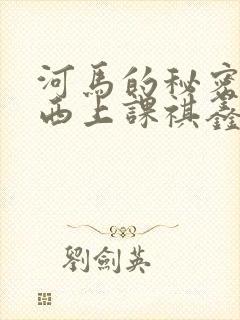 河馬的秘密
西上課祺鑫
劉劍英